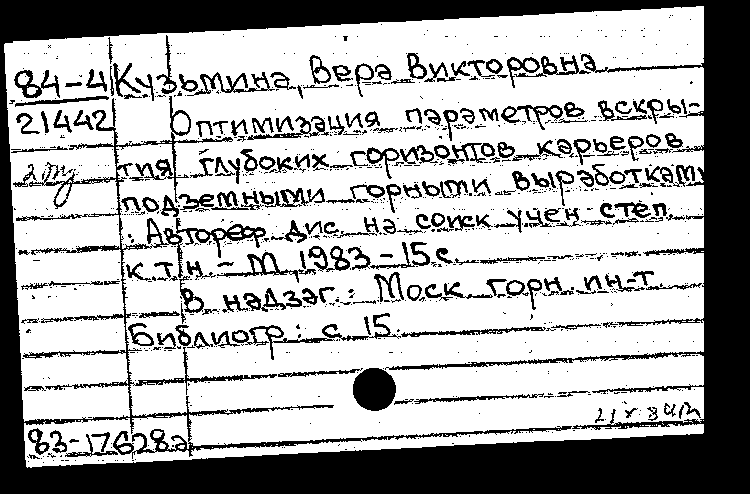 84-4 Кузьмина, Вера Викторовна
21442 Оптимизация параметров вскры-
тия глубоких горизонтов карьеров
подземными горными выработками
: Автореф. дис. на соиск. учен. степ.
к.т.н. - М., 1983 - 15 с.
В надзаг.: Моск. горн. ин-т.
Библиогр.: с 15.
83-17628а